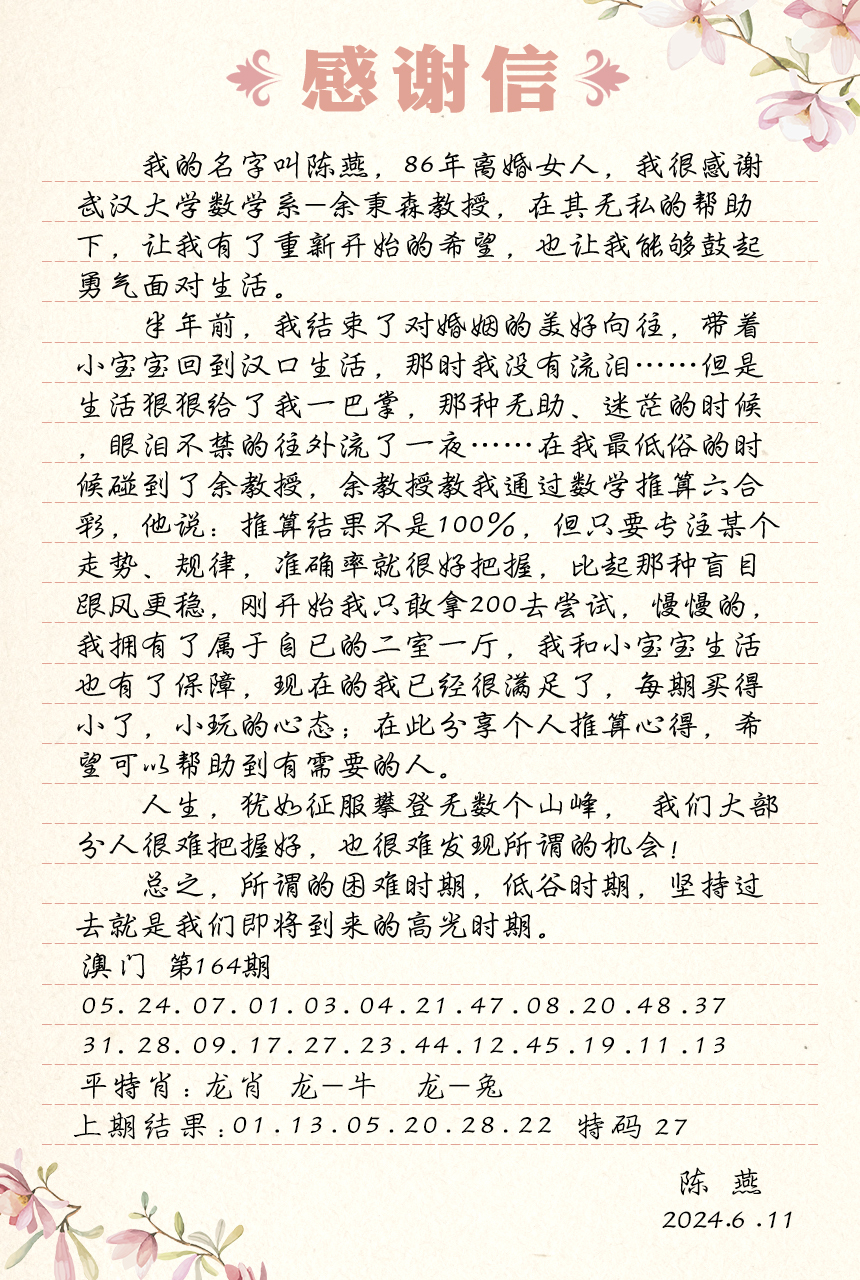 感谢信
我的名字叫陈燕，86年离婚女人，我很感谢
武汉大学数学系—余秉森教授，在其无私的帮助
下，让我有了重新开始的希望，也让我能够鼓起
勇气面对生活。
半年前，我结束了对婚姻的美好向往，带着
小宝宝回到汉口生活，那时我没有流泪……但是
生活狠狠给了我一巴掌，那种无助、迷茫的时候
，眼泪不禁的往外流了一夜……在我最低俗的时
候碰到了余教授，余教授教我通过数学推算六合
彩，他说：推算结果不是100%，但只要专注某个
走势、规律，准确率就很好把握，比起那种盲目
跟风更稳，刚开始我只敢拿200去尝试，慢慢的，
我拥有了属于自已的二室一厅，我和小宝宝生活
也有了保障，现在的我已经很满足了，每期买得
小了，小玩的心态；在此分享个人推算心得，希
望可以帮助到有需要的人。
人生，犹如征服攀登无数个山峰， 我们大部
分人很难把握好，也很难发现所谓的机会！
总之，所谓的困难时期，低谷时期，坚持过
去就是我们即将到来的高光时期。
澳门 第164期
05.24.07.01.03.04.21.47.08.20.48.37
31.28.09.17.27.23.44.12.45.19.11.13
平特肖：龙肖 龙—牛 龙—兔
上期结果：01.13.05.20.28.22 特码 27
陈 燕
2024.6.11